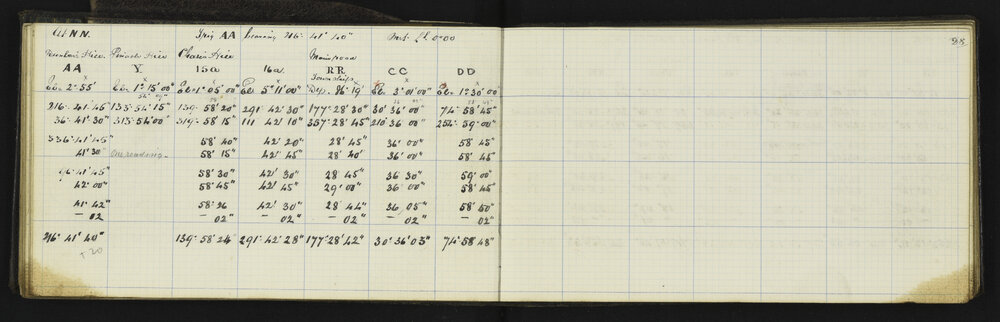 At N.N. Trig AA bearing 216° 41' 40" Inst. El 0.00
28
Hill Pinnacle Hill Chain Hill
AA Y 15a 16a RR CC DD
El. 2° 55' El. 1° 15' 00" El. 1° 05' 00" El. 5° 11' 00" Dep. 86' 19' El. 3° 01' 00" El. 1° 30' 00"
216° 41' 45" 133° 54' 15" 139° 58' 20" 291° 42' 30" 177° 28' 30" 30° 36' 00" 74° 58' 45"
36° 41' 30" 313° 54' 00" 319° 58' 15" 111° 42' 10" 357° 28' 45" 210° 36' 00" 254° 59' 00"
336° 41' 45" 58' 40" 42' 20" 28' 45" 36' 00" 58' 45"
41' 30" One reading. 58' 15" 42' 45" 28' 40" 36' 00" 58' 45"
96° 41' 45" 58' 30" 42' 30" 28' 45" 36' 30" 59' 00"
42' 00" 58' 45" 42' 45" 29' 00" 36' 00" 58' 45"
41' 42" 58' 26 42' 30" 28' 44" 36' 05" 58' 50"
- 02 - 02" - 02" - 02" - 02" - 02"
216° 41' 40" 139° 58' 24" 291° 42' 28" 177° 28' 42" 30° 36' 03" 74° 58' 48"
+20